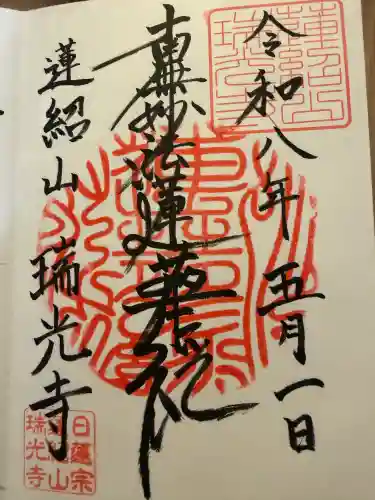 令和八年五月一日
南無妙法蓮華経
蓮紹山瑞光寺
日蓮宗
蓮紹山
瑞光寺